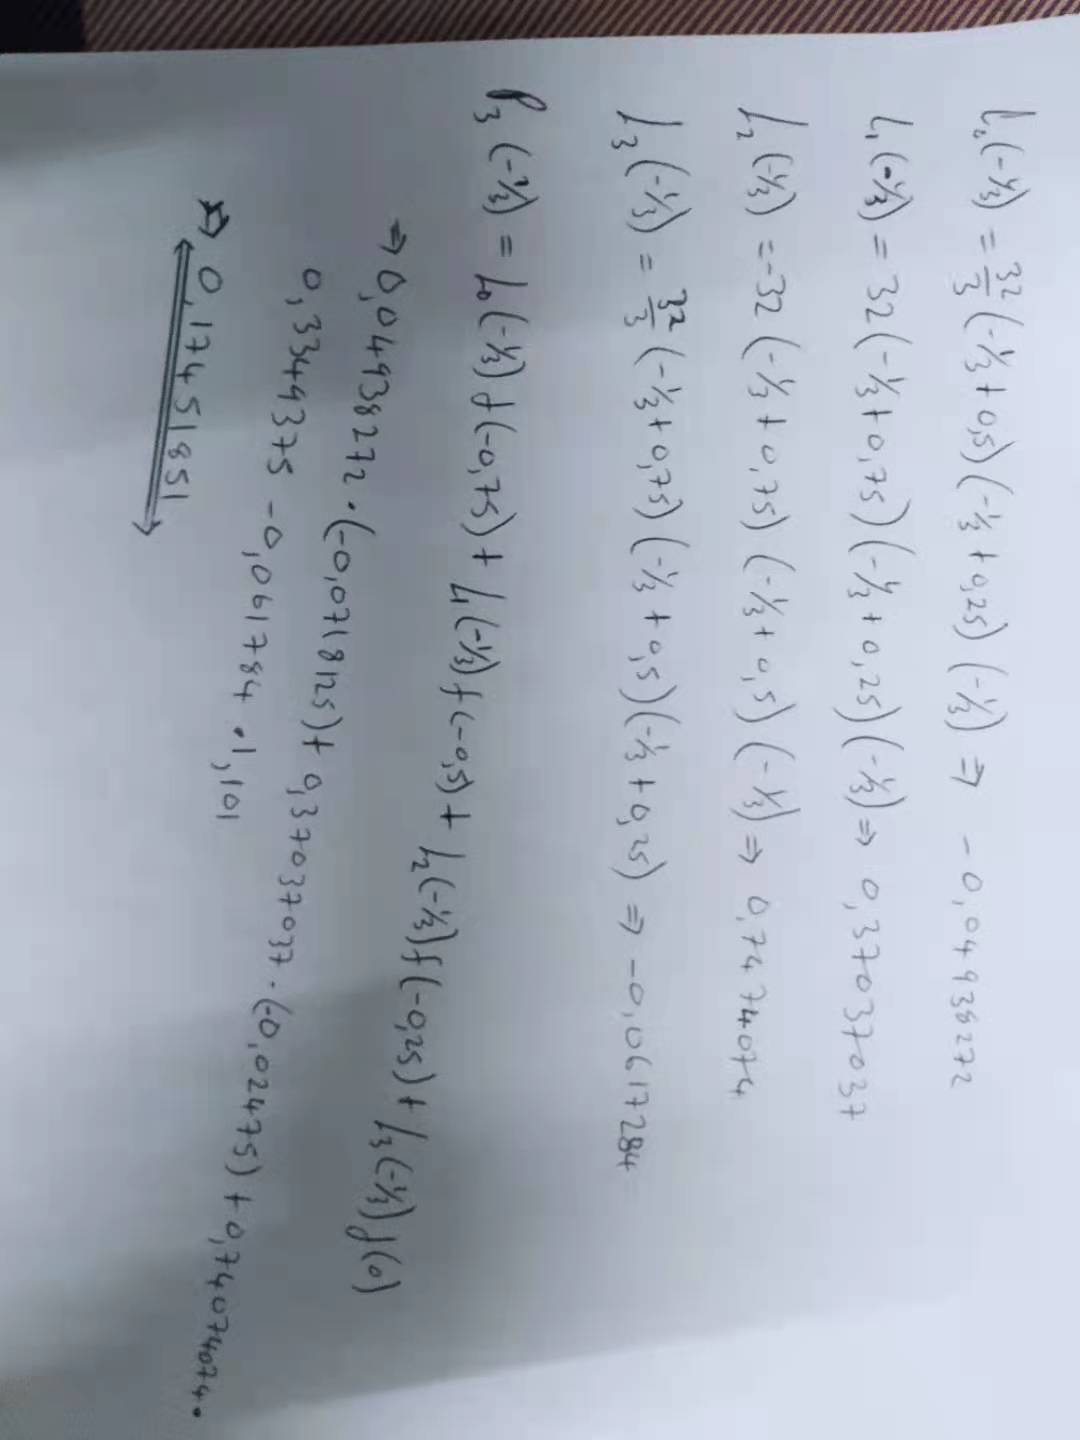 L₀(-⅓) = 32/3 (-⅓+0,5)(-⅓+0,25)(-⅓) ⇒ -0,04938272
L₁(-⅓) = 32(-⅓+0,75)(-⅓+0,25)(-⅓) ⇒ 0,37037037
L₂(-⅓) = -32(-⅓+0,75)(-⅓+0,5)(-⅓) ⇒ 0,7474074
L₃(-⅓) = 32/3 (-⅓+0,75)(-⅓+0,5)(-⅓+0,25) ⇒ -0,0617284
P₃(-⅓) = L₀(-⅓)f(-0,75) + L₁(-⅓)f(-0,5) + L₂(-⅓)f(-0,25) + L₃(-⅓)f(0)
⇒ 0,04938272·(-0,0718125) + 0,37037037·(-0,02475) + 0,74074074·
0,3349375 - 0,061784·1,101
⇒ 0,17451851